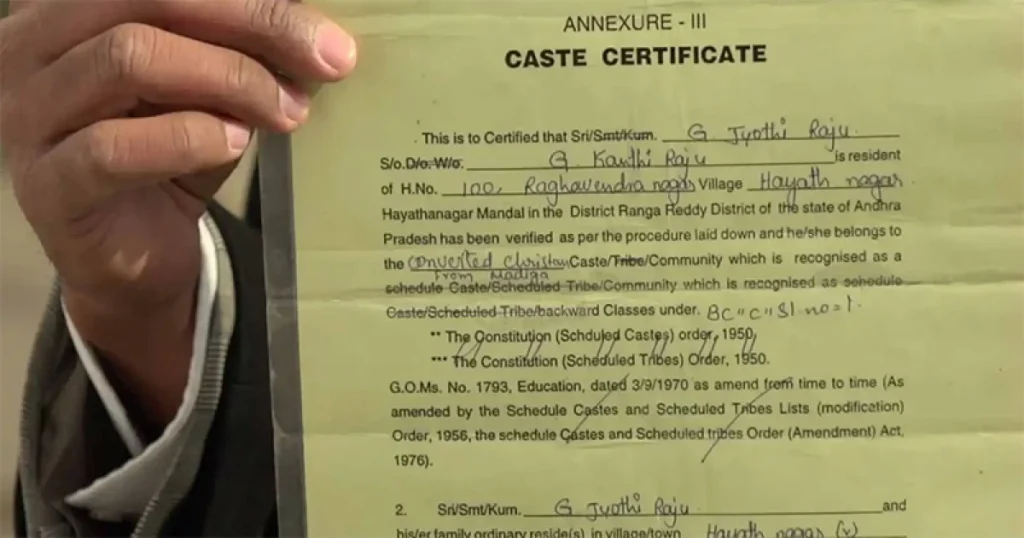 ANNEXURE - III
CASTE CERTIFICATE
This is to Certified that Sri/Smt/Kum. G Jyothi Raju
S/o.D/o.W/o. G Kanthi Raju is resident
of H.No. 100, Raghavendra nagar Village Hayath nagar
Hayathanagar Mandal in the District Ranga Reddy District of the state of Andhra
Pradesh has been verified as per the procedure laid down and he/she belongs to
the Converted Christian Caste/Tribe/Community which is recognised as a
from Madiga
schedule Caste/Scheduled Tribe/Community which is recognised as schedule
Caste/Scheduled Tribe/backward Classes under. BC "C" Sl no = 1
** The Constitution (Schduled Castes) order, 1950,
*** The Constitution (Scheduled Tribes) Order, 1950.
G.O.Ms. No. 1793, Education, dated 3/9/1970 as amend from time to time (As
amended by the Schedule Castes and Scheduled Tribes Lists (modification)
Order, 1956, the schedule Castes and Scheduled tribes Order (Amendment) Act,
1976).
2. Sri/Smt/Kum. G Jyothi Raju and
his/er family ordinary reside(s) in village/town Hayath nagar (v)